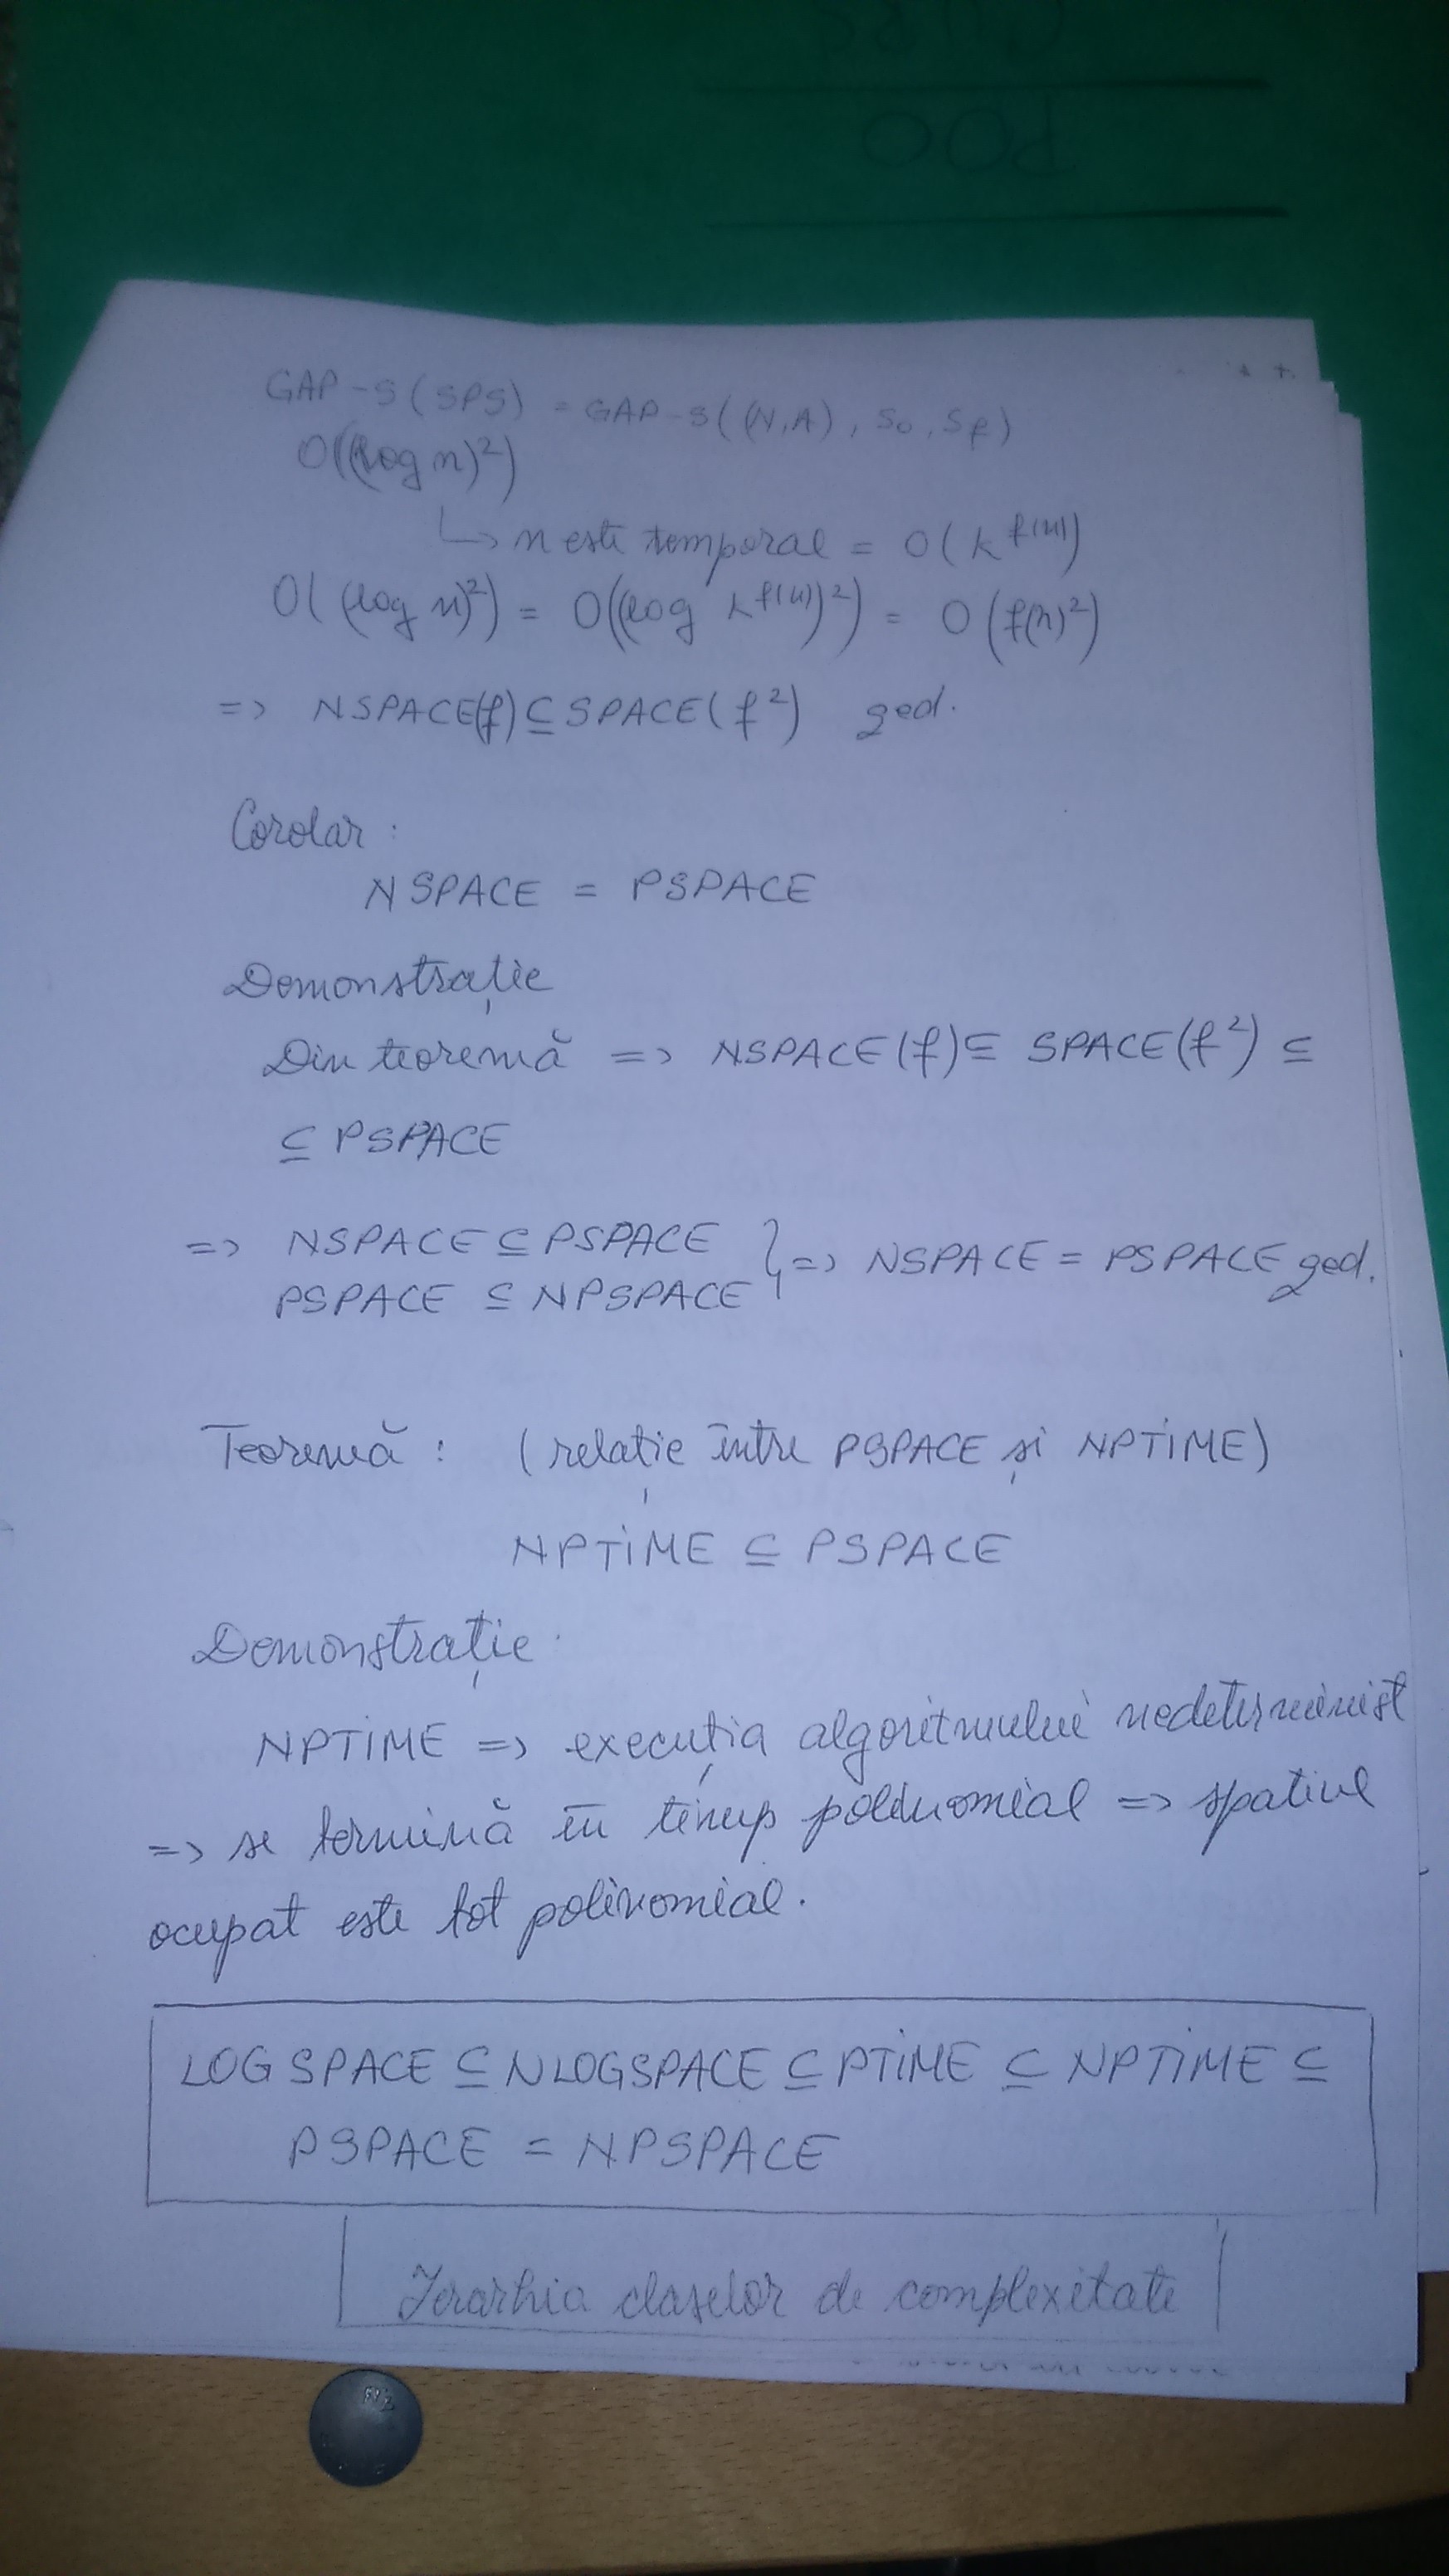 CURS
POO
GAP-S(SPS) = GAP-S((N,A), S0, Sf)
O((log n)²)
↳ n este temporal = O(k^f(n))
O((log n)²) = O((log k^f(n))²) = O(f(n)²)
=> NSPACE(f) ⊆ SPACE(f²) qed.
Corolar:
NSPACE = PSPACE
Demonstrație
Din teoremă => NSPACE(f) ⊆ SPACE(f²) ⊆
⊆ PSPACE
=> NSPACE ⊆ PSPACE
PSPACE ⊆ NPSPACE } => NSPACE = PSPACE qed.
Teoremă: (relație între PSPACE și NPTIME)
NPTIME ⊆ PSPACE
Demonstrație.
NPTIME => execuția algoritmului nedeterminist
=> se termină în timp polinomial => spatiul
ocupat este tot polinomial.
LOGSPACE ⊆ NLOGSPACE ⊆ PTIME ⊆ NPTIME ⊆
PSPACE = NPSPACE
Ierarhia claselor de complexitate